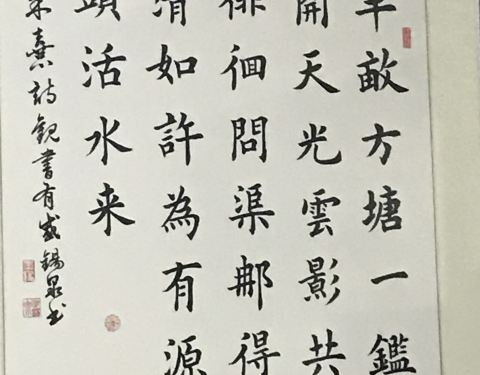 半敵方塘一鑑
開天光雲影共
徘徊問渠那得
清如許為有源
頭活水来
朱熹詩觀書有感錫泉书